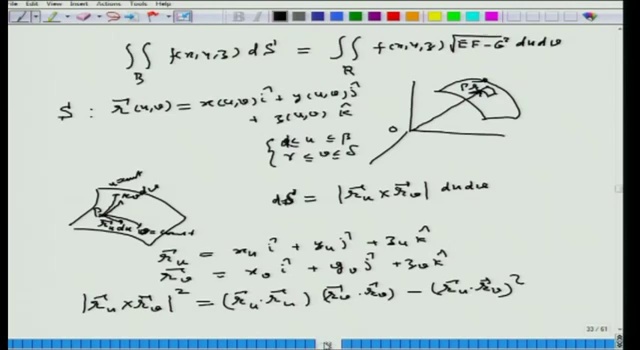 Edit View Insert Actions Tools Help
∬_B f(x,y,z) dS = ∬_R f(x,y,z) √(EF-G²) du dv
S : r⃗(u,v) = x(u,v) î + y(u,v) ĵ
+ z(u,v) k̂
{ α ≤ u ≤ β
γ ≤ v ≤ δ
O
P
r⃗
u const
r⃗_v dv
P
r⃗_u du
v = const
dS = |r⃗_u × r⃗_v| du dv
r⃗_u = x_u î + y_u ĵ + z_u k̂
r⃗_v = x_v î + y_v ĵ + z_v k̂
|r⃗_u × r⃗_v|² = (r⃗_u · r⃗_u) (r⃗_v · r⃗_v) - (r⃗_u · r⃗_v)²
22 / 61